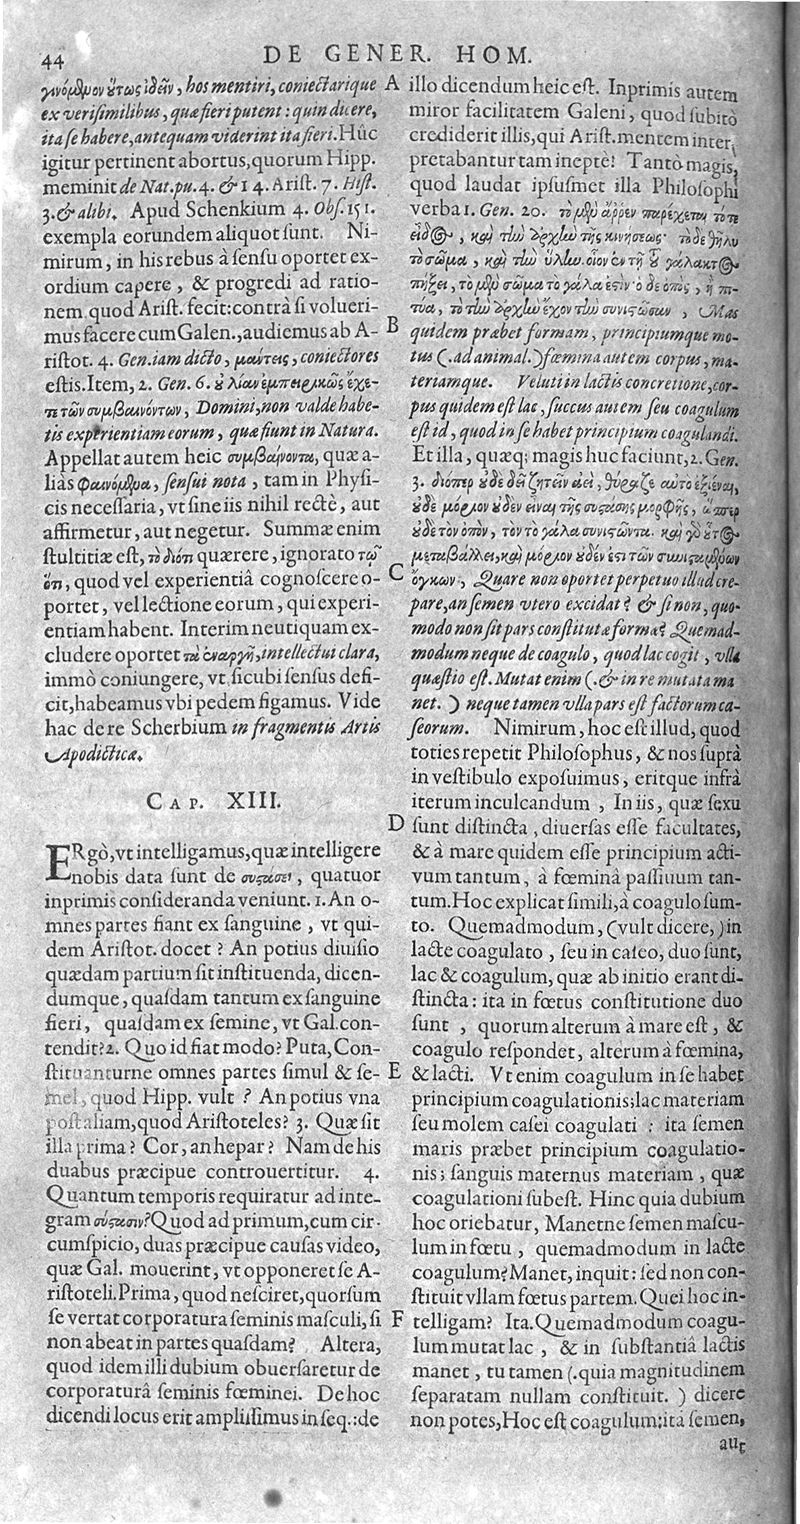 44
DE GENER. HOM.
γινόμενον οὕτως ἰδεῖν, hos mentiri, coniectarique
ex verisimilibus, quæ fieri putent: quin dicere,
ita se habere, antequam viderint ita fieri. Hûc
igitur pertinent abortus, quorum Hipp.
meminit de Nat.pu. 4. & 14. Arist. 7. Hist.
3. & alibi. Apud Schenkium 4. Obs. 151.
exempla eorundem aliquot sunt. Ni-
mirum, in his rebus à sensu oportet ex-
ordium capere, & progredi ad ratio-
nem quod Arist. fecit: contrà si volueri-
mus facere cum Galen., audiemus ab A-
ristot. 4. Gen. iam dicto, μαύτεις, coniectores
estis. Item, 2. Gen. 6. οὐ λίαν ἐμπειρικῶς ἔχε-
τε τῶν συμβαινόντων, Domini, non valde habe-
tis experientiam eorum, quæ fiunt in Natura.
Appellat autem heic συμβαίνοντα, quæ a-
liàs φαινόμενα, sensui nota, tam in Physi-
cis necessaria, vt sine iis nihil rectè, aut
affirmetur, aut negetur. Summæ enim
stultitiæ est, τὸ διότι quærere, ignorato τῷ
ὅτι, quod vel experientiâ cognoscere o-
portet, vel lectione eorum, qui experi-
entiam habent. Interim neutiquam ex-
cludere oportet τὰ ἐναργῆ, intellectui clara,
immò coniungere, vt sicubi sensus defi-
cit, habeamus vbi pedem figamus. Vide
hac de re Scherbium in fragmentis Artis
Apodicticæ.
CAP. XIII.
ERgò, vt intelligamus, quæ intelligere
nobis data sunt de συστάσει, quatuor
inprimis consideranda veniunt. 1. An o-
mnes partes fiant ex sanguine, vt qui-
dem Aristot. docet? An potius diuisio
quædam partium sit instituenda, dicen-
dumque, quasdam tantum ex sanguine
fieri, quasdam ex semine, vt Gal. con-
tendit? 2. Quo id fiat modo? Puta, Con-
stituanturne omnes partes simul & se-
mel, quod Hipp. vult? An potius vna
post aliam, quod Aristoteles? 3. Quæ sit
illa prima? Cor, an hepar? Nam de his
duabus præcipue controuertitur. 4.
Quantum temporis requiratur ad inte-
gram σύστασιν? Quod ad primum, cum cir-
cumspicio, duas præcipue causas video,
quæ Gal. mouerint, vt opponeret se A-
ristoteli. Prima, quod nesciret, quorsum
se vertat corporatura seminis masculi, si
non abeat in partes quasdam? Altera,
quod idem illi dubium obuersaretur de
corporaturâ seminis fœminei. De hoc
dicendi locus erit amplissimus in seq.: de
A
B
C
D
E
F
illo dicendum heic est. Inprimis autem
miror facilitatem Galeni, quod subitò
crediderit illis, qui Arist. mentem inter-
pretabantur tam ineptè! Tantò magis,
quod laudat ipsusmet illa Philosophi
verba 1. Gen. 20. τὸ μὲν ἄρρεν παρέχεται τό τε
εἶδος, καὶ τὴν ἀρχὴν τῆς κινήσεως· τὸ δὲ θῆλυ
τὸ σῶμα, καὶ τὴν ὕλην. οἷον ἐν τῇ τοῦ γάλακτος
πήξει, τὸ μὲν σῶμα τὸ γάλα ἐστίν· ὁ δὲ ὀπὸς, ἢ πι-
τύα, τὸ τὴν ἀρχὴν ἔχον τὴν συνιστῶσαν, Mas
quidem præbet formam, principiumque mo-
tus (. ad animal.) fœmina autem corpus, ma-
teriamque. Veluti in lactis concretione, cor-
pus quidem est lac, succus autem seu coagulum
est id, quod in se habet principium coagulandi.
Et illa, quæq; magis huc faciunt, 2. Gen.
3. διόπερ οὐδὲ δεῖ ζητεῖν ἀεὶ, θύραζε αὐτὸ ἐξιέναι,
οὐδὲ μόριον οὐδὲν εἶναι τῆς συστάσης μορφῆς, ὥσπερ
οὐδὲ τὸν ὀπὸν, τὸν τὸ γάλα συνιστῶντα. καὶ γὰρ οὗτος
μεταβάλλει, καὶ μόριον οὐδὲν ἐστι τῶν συνισταμένων
ὄγκων, Quare non oportet perpetuo illud cre-
pare, an semen vtero excidat? & si non, quo-
modo non sit pars constitutæ formæ? Quemad-
modum neque de coagulo, quod lac cogit, vlla
quæstio est. Mutat enim (. & in re mutata ma
net. ) neque tamen vlla pars est factorum ca-
seorum. Nimirum, hoc est illud, quod
toties repetit Philosophus, & nos suprà
in vestibulo exposuimus, eritque infrà
iterum inculcandum, In iis, quæ sexu
sunt distincta, diuersas esse facultates,
& à mare quidem esse principium acti-
vum tantum, à fœminâ passiuum tan-
tum. Hoc explicat simili, à coagulo sum-
to. Quemadmodum, (vult dicere,) in
lacte coagulato, seu in caseo, duo sunt,
lac & coagulum, quæ ab initio erant di-
stincta: ita in fœtus constitutione duo
sunt, quorum alterum à mare est, &
coagulo respondet, alterum à fœmina,
& lacti. Vt enim coagulum in se habet
principium coagulationis; lac materiam
seu molem casei coagulati: ita semen
maris præbet principium coagulatio-
nis; sanguis maternus materiam, quæ
coagulationi subest. Hinc quia dubium
hoc oriebatur, Manetne semen mascu-
lum in fœtu, quemadmodum in lacte
coagulum? Manet, inquit: sed non con-
stituit vllam fœtus partem. Quei hoc in-
telligam? Ita. Quemadmodum coagu-
lum mutat lac, & in substantiâ lactis
manet, tu tamen (. quia magnitudinem
separatam nullam constituit. ) dicere
non potes, Hoc est coagulum: ita semen,
aut